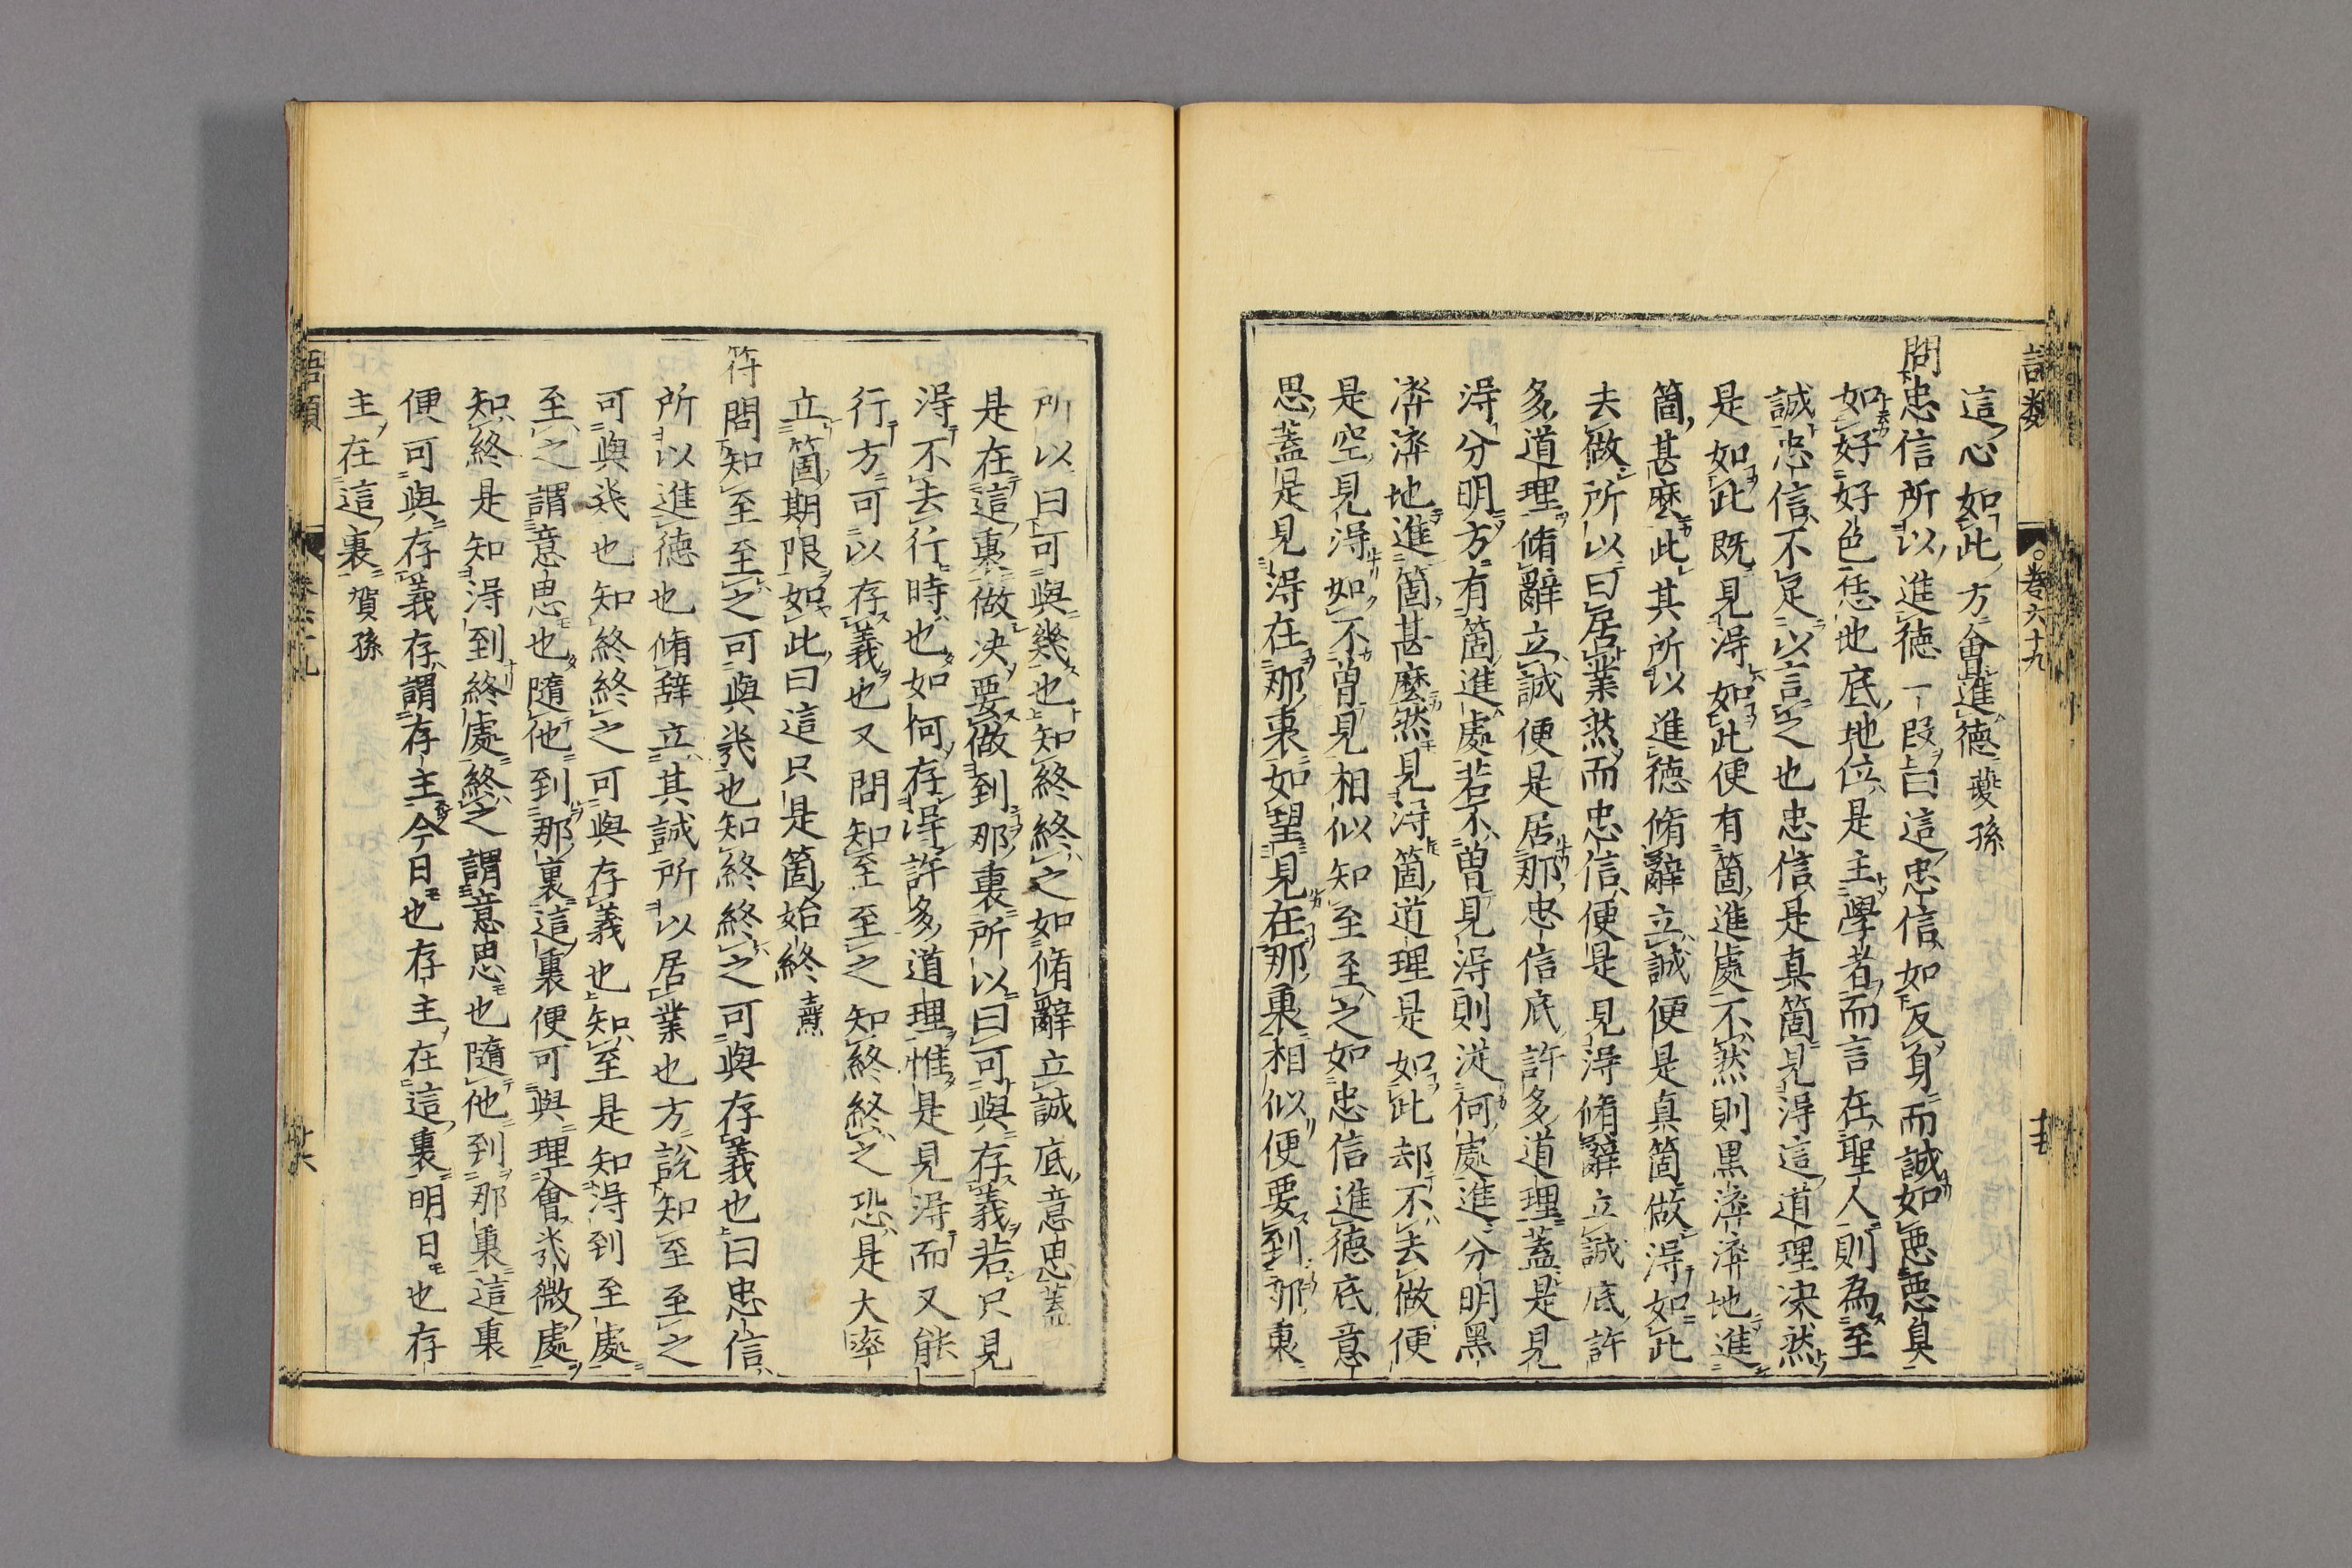 語類
卷六十九
這心如此方會進德 夔孫
問忠信所以進德一段曰這忠信如反身而誠如惡惡臭
如好好色恁地底地位是主學者而言在聖人則為至
誠忠信不足以言之也忠信是真箇見得這道理決然
是如此既見得如此便有箇進處不然則黒淬淬地進
箇甚麼此其所以進德脩辭立誠便是真箇做得如此
去做所以曰居業然而忠信便是見得脩辭立誠底許
多道理脩辭立誠便是居那忠信底許多道理蓋是見
得分明方有箇進處若不曾見得則從何處進分明黑
淬淬地進箇甚麼然見得箇道理是如此却不去做便
是空見得如不曾見相似知至至之如忠信進德底意
思蓋是見得在那裏如望見在那裏相似便要到那裏
所以曰可與幾也知終終之如脩辭立誠底意思蓋
是在這裏做決要做到那裏所以曰可與存義若只見
得不去行時也如何存得許多道理惟是見得而又能
行方可以存義也又問知至至之知終終之恐是大率
立箇期限如此曰這只是箇始終 燾
符問知至至之可與㡬也知終終之可與存義也曰忠信
所以進德也脩辭立其誠所以居業也方說知至至之
可與㡬也知終終之可與存義也知至是知得到至處
至之謂意思也隨他到那裏這裏便可與理會㡬微處
知終是知得到終處終之謂意思也隨他到那裏這裏
便可與存義存謂存主今日也存主在這裏明日也存
主在這裏 賀孫
語類